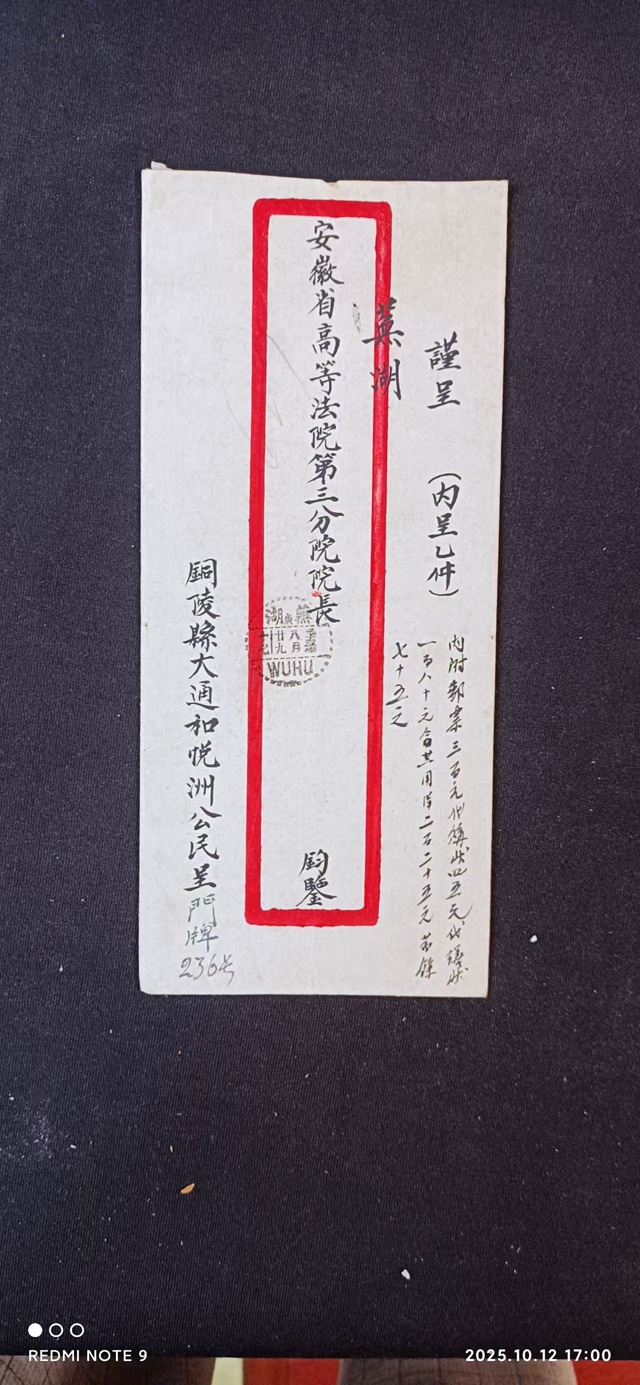 謹呈 (内呈乙件)
内附郵票三百元代繕狀四五元代繕狀
一百八十元合共用洋二百二十五元芳餘
七十五元
蕪湖
安徽省高等法院第三分院院長 鈞鑒
銅陵縣大通和悅洲公民呈門牌
236号
蕪湖
WUHU
REDMI NOTE 9
2025.10.12 17:00